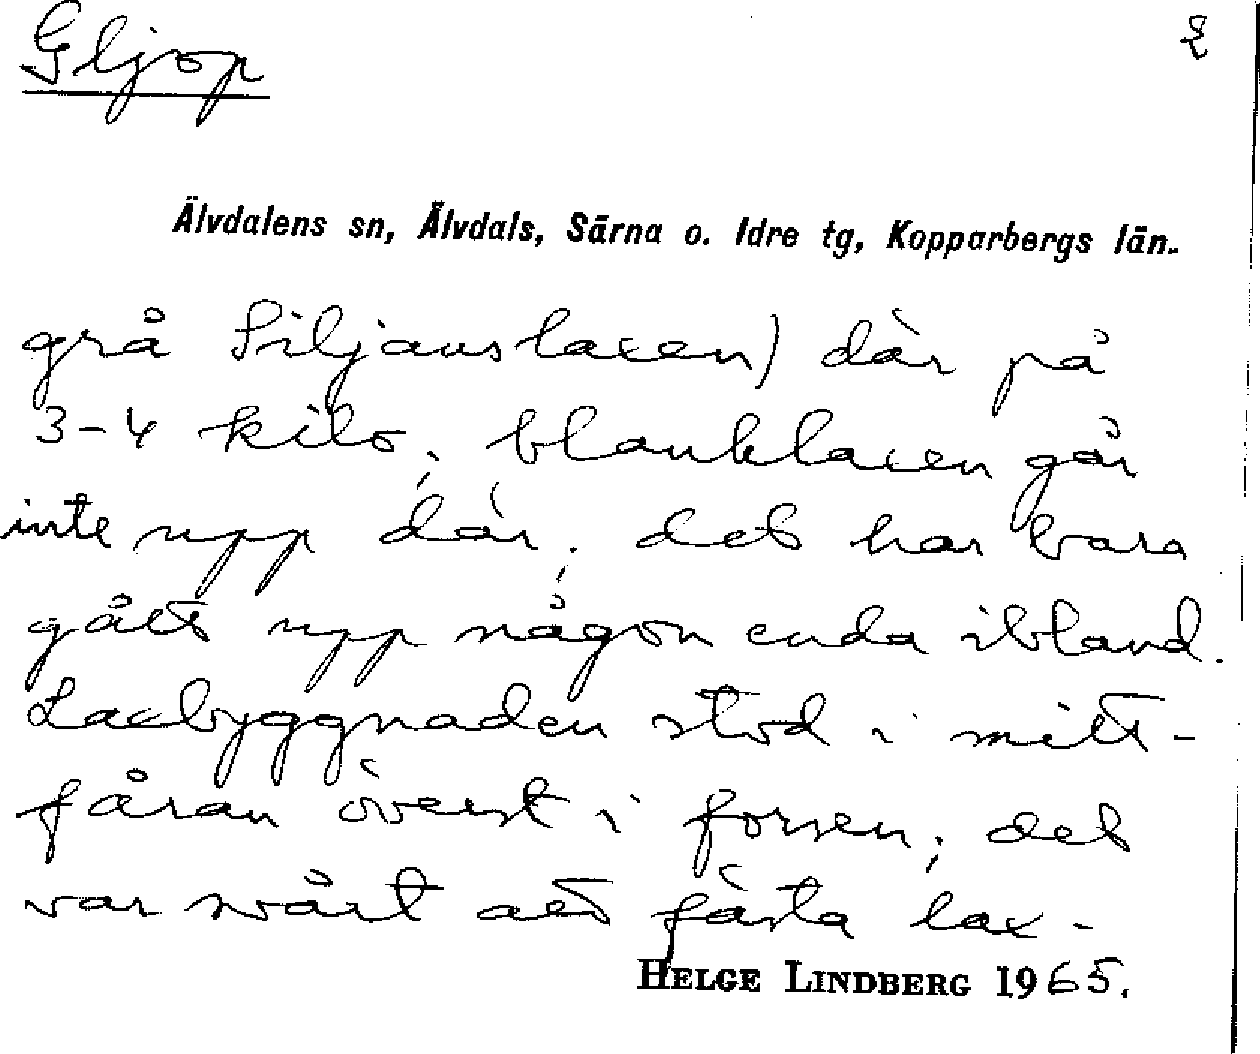 Gljop
Älvdalens sn, Älvdals, Särna o. Idre tg, Kopparbergs län.
grå Siljanslaxen) där på
3-4 kilo; blanklaxen går
inte upp där; det har bara
gått upp någon enda ibland.
Laxbyggnaden stod i mitt-
fåran överst i forsen; det
var svårt att fästa lax-
HELGE LINDBERG 1965.